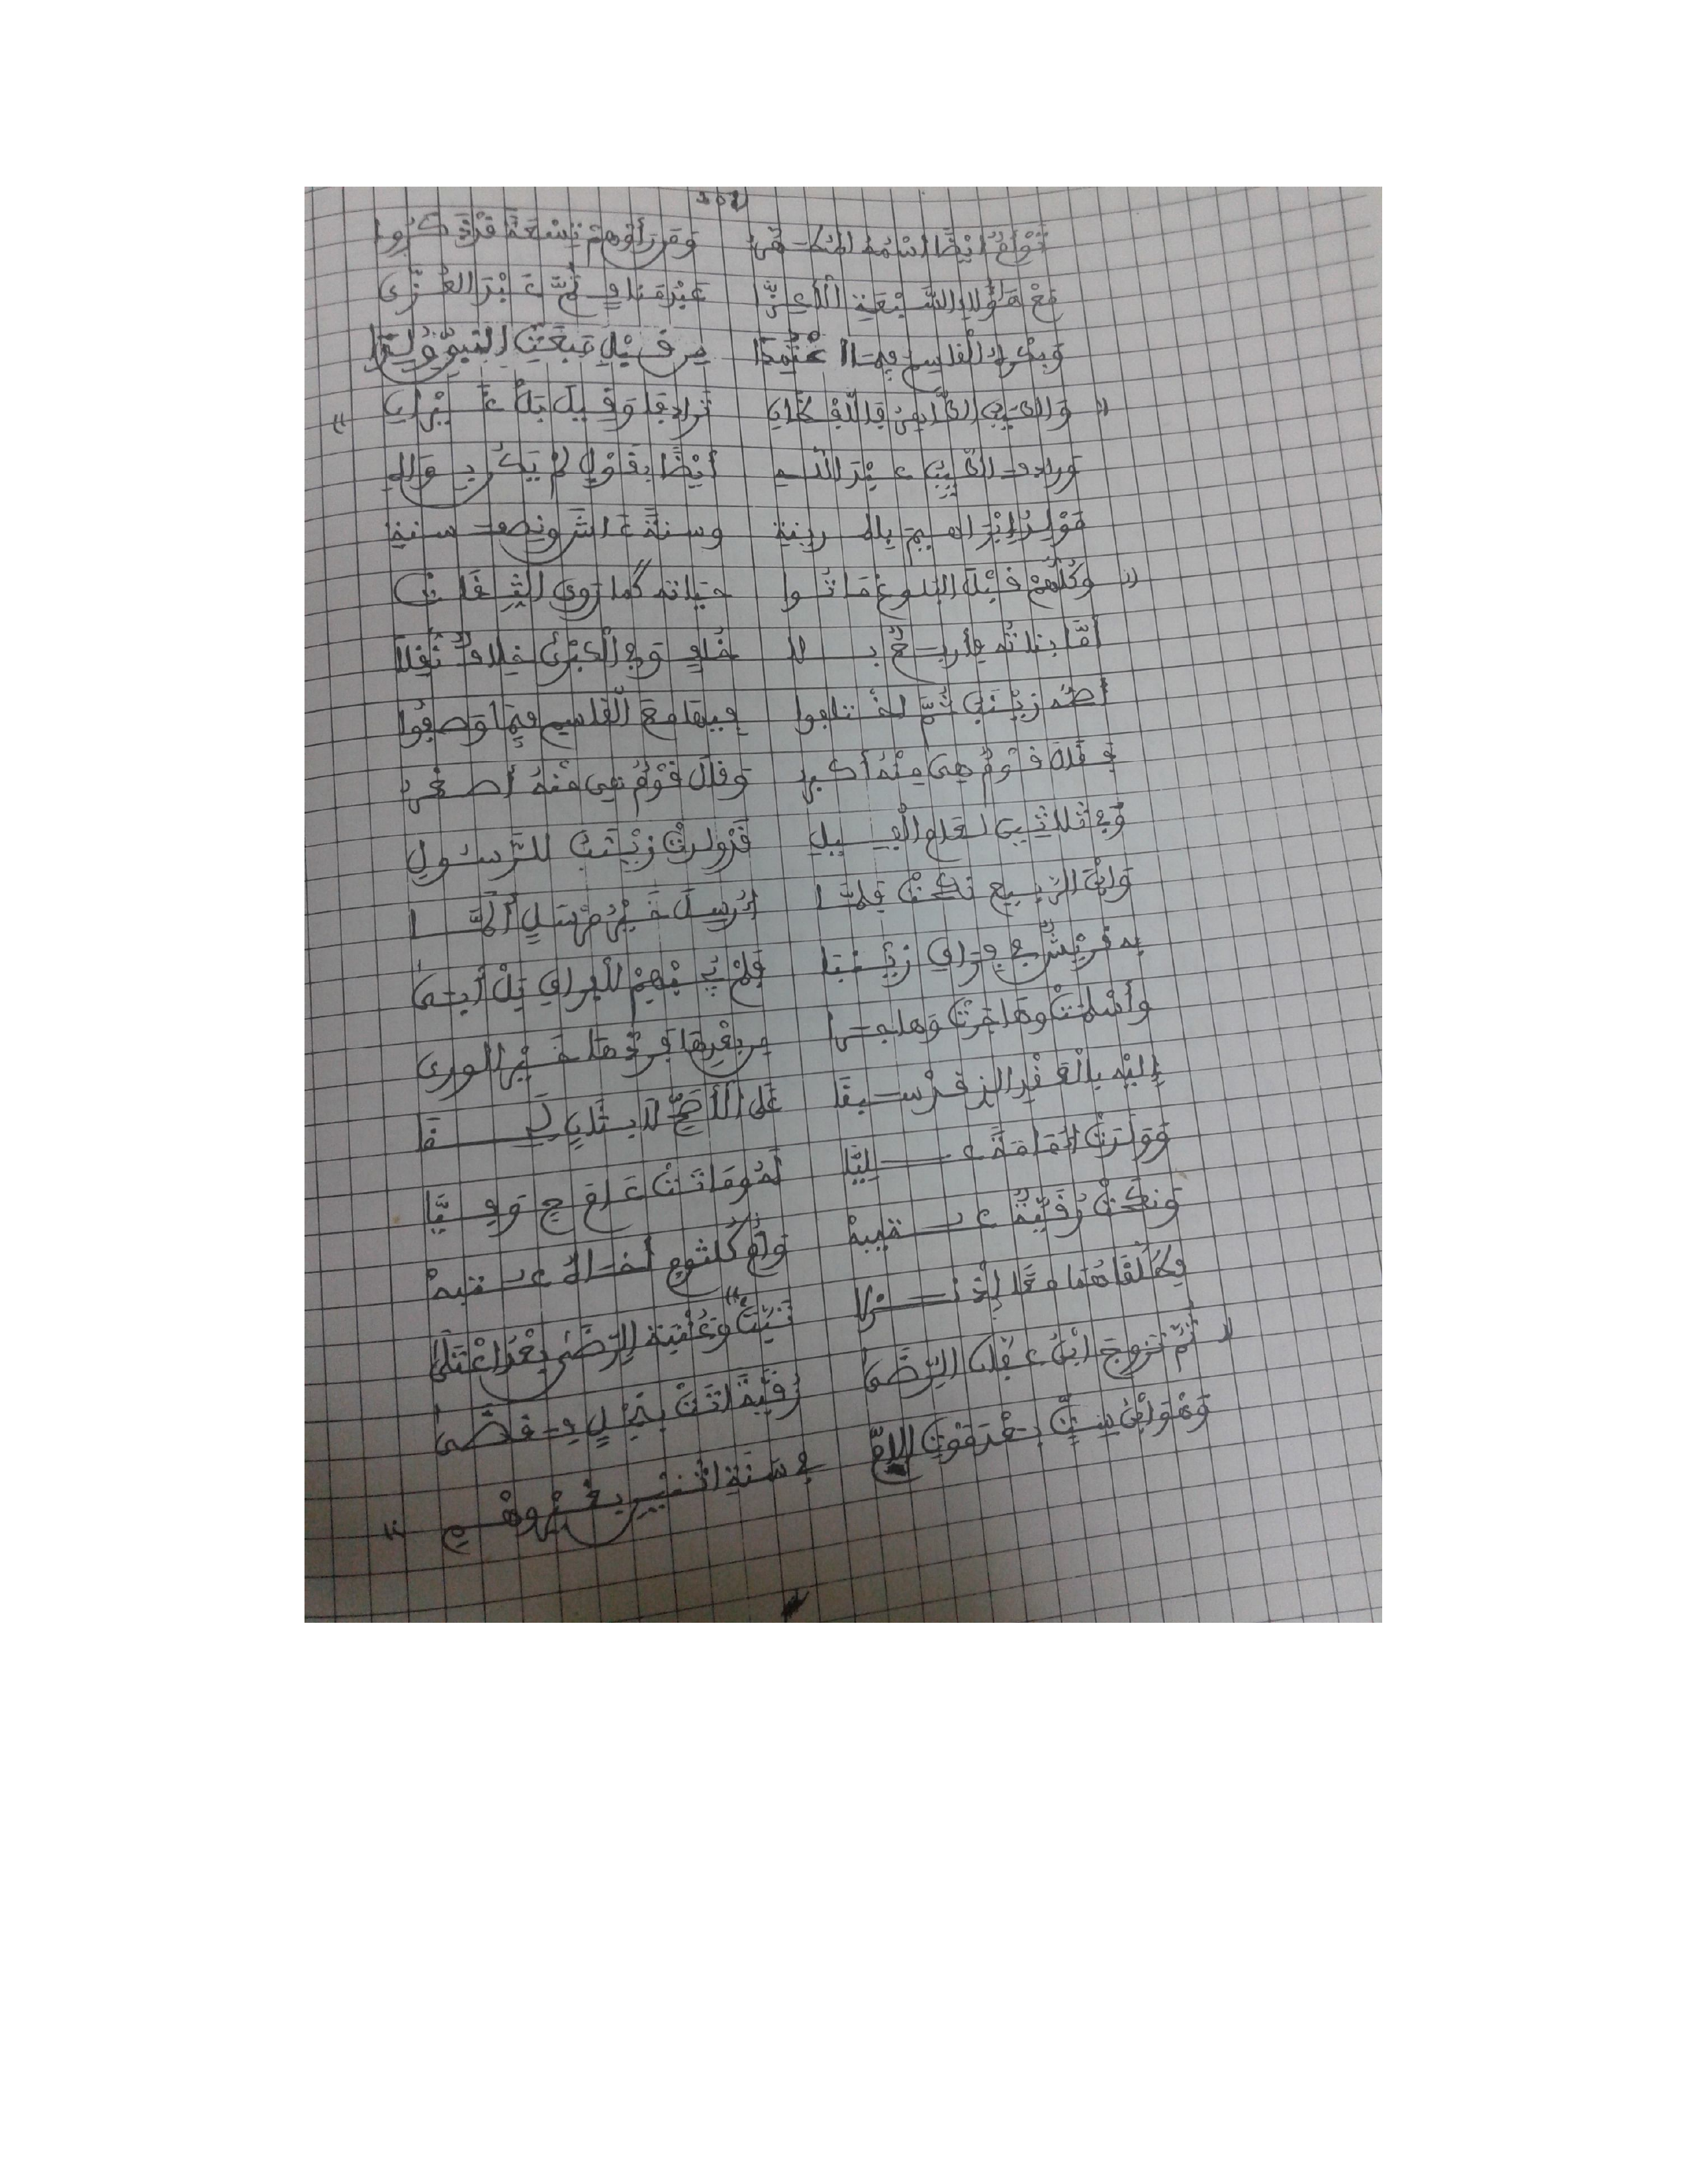 تَوْأَمُ أَيْضًا اسْمُهُ الْمُطَهَّرُ وَمَن رَأَوْهُمْ تِسْعَةً قَدْ ذَكَرُوا
مَعْ هَؤُلَاءِ السَّبْعَةِ الْأَعِزَّا عَبْدَ مَنَافٍ ثُمَّ عَبْدَ الْعُزَّى
وَبِكْرُهُ الْقَاسِمُ فِيمَا اعْتُمِدَا مِن قَبْلِ مَبْعَثِ النَّبُوَّةِ وُلِدَا
وَالطَّيِّبُ الطَّاهِرُ قِ اللَّفْظَانِ تَرَادَفَا وَقِيلَ بَلْ غَيْرَانِ
ورادف الطَّيِّبُ عَبْدَ اللَّهِ أَيْضًا بِقَوْلٍ لَمْ يَكُن بِوَاهِ
مَوْلِدُ إِبْرَاهِيمَ بِالْمَدِينَةِ وسنةً عَاشَ ونصف سنة
وَكُلُّهُمْ قَبْلَ الْبُلُوغِ مَاتُوا حَيَاتَهُ كَمَا رَوَى الثِّقَاتُ
أَمَّا بَنَاتُهُ فَأَرْبَعٌ بِلَا خُلْفٍ وَفِي الْكُبْرَى خِلَافٌ نُقِلَا
أصحه زَيْنَبُ ثُمَّ اخْتَلَفُوا فِيهَا مَعَ الْقَاسِمِ فِيمَا وَصَفُوا
فَقَالَ قَوْمٌ هِيَ مِنْهُ أَكْبَرُ وَقَالَ قَوْمٌ هِيَ مِنْهُ أَصْغَرُ
وَفِي ثَلَاثِينَ لِعَامِ الْفِيلِ قَدْ وُلِدَتْ زَيْنَبُ لِلرَّسُولِ
وَابْنَ الرَّبِيعِ نَكَحَتْ فَلَمَّا أُرْسِلَ خَيْرُ مُرْسَلٍ أَلَمَّا
بِهِ قُرَيْشٌ فِي فِرَاقِ زَيْنَبَا فَلَمْ يُجِبْهُمْ لِلْفِرَاقِ بَلْ أَبَى
وَأَسْلَمَتْ وَهَاجَرَتْ وَهَاجَرَا مِن بَعْدِهَا فَرَدَّهَا خَيْرُ الْوَرَى
إِلَيْهِ بِالْعَقْدِ الَّذِ قَدْ سَبَقَا عَلَى الْأَصَحِّ لَا بِثَانٍ لَحِقَا
وَوَلَدَتْ أُمَامَةً عَلِيَّا لَهُ وَمَاتَتْ عَامَ حٍ وَفِيَّا
وَنَكَحَتْ رُقَيَّةٌ عُتَيْبَهْ وَأُمُّ كُلْثُومٍ أَخَاهُ عُتْبَهْ
فَطَلَّقَاهُمَا مَعًا إِذْ نَزَلَا تَبَّتْ وَعُتْبَةُ ارْتَضَى بَعْدُ اعْتَلَى
ثُمَّ تَزَوَّجَ ابْنُ عَفَّانَ الرِّضَى رُقَيَّةً أَتَتْ بِنَجْلٍ فَقَضَى
وَهْوَ ابْنُ سِتٍّ بَعْدَ مَوْتِ الْأُمِّ فِي سَنَةِ اثْنَيْنِ بِغَيْرِ وَهْمِ